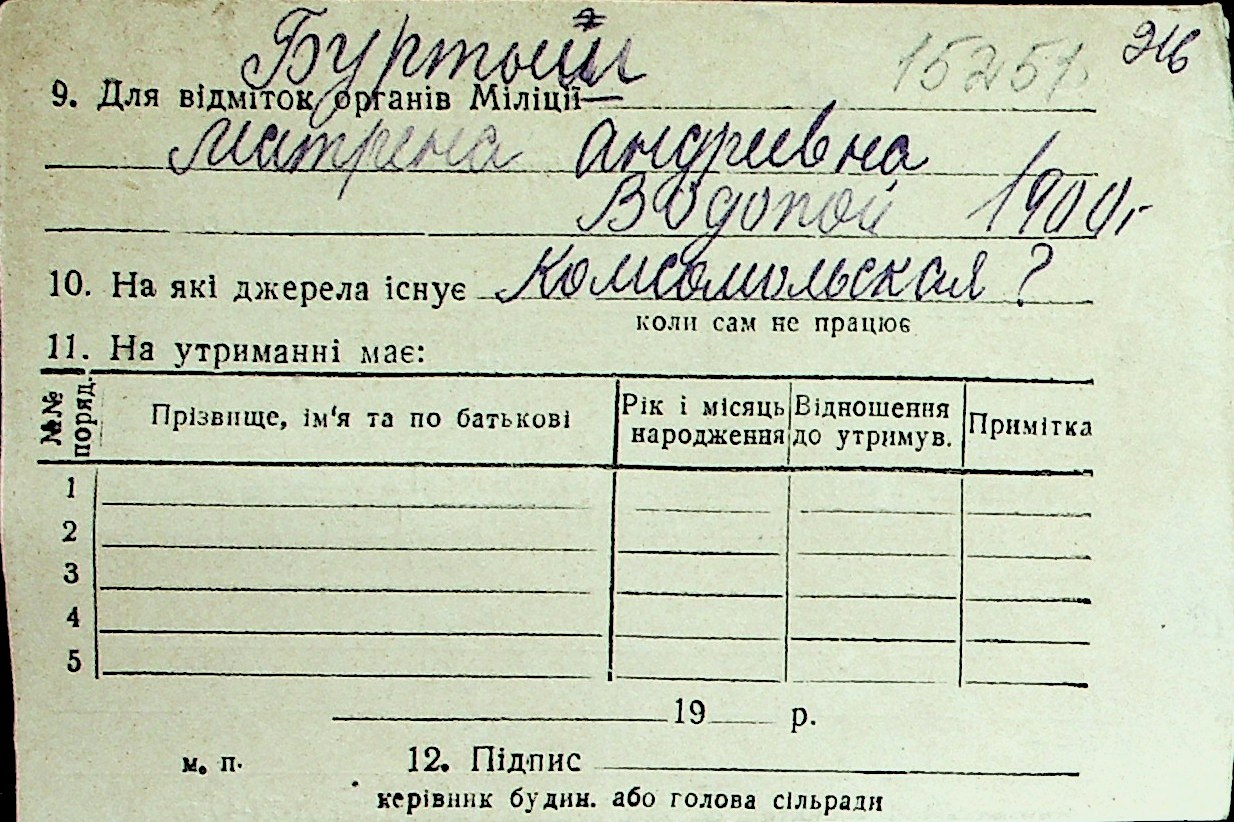 216
15251
9. Для відміток органів Міліції
Матрена Андреевна
Водопой 1900 г
10. На які джерела існує Комсомольская ?
коли сам не працює
11. На утриманні має:
№№ поряд.
Прізвище, ім'я та по батькові
Рік і місяць народження
Відношення до утримув.
Примітка
1
2
3
4
5
19 р.
м. п.
12. Підпис
керівник будин. або голова сільради